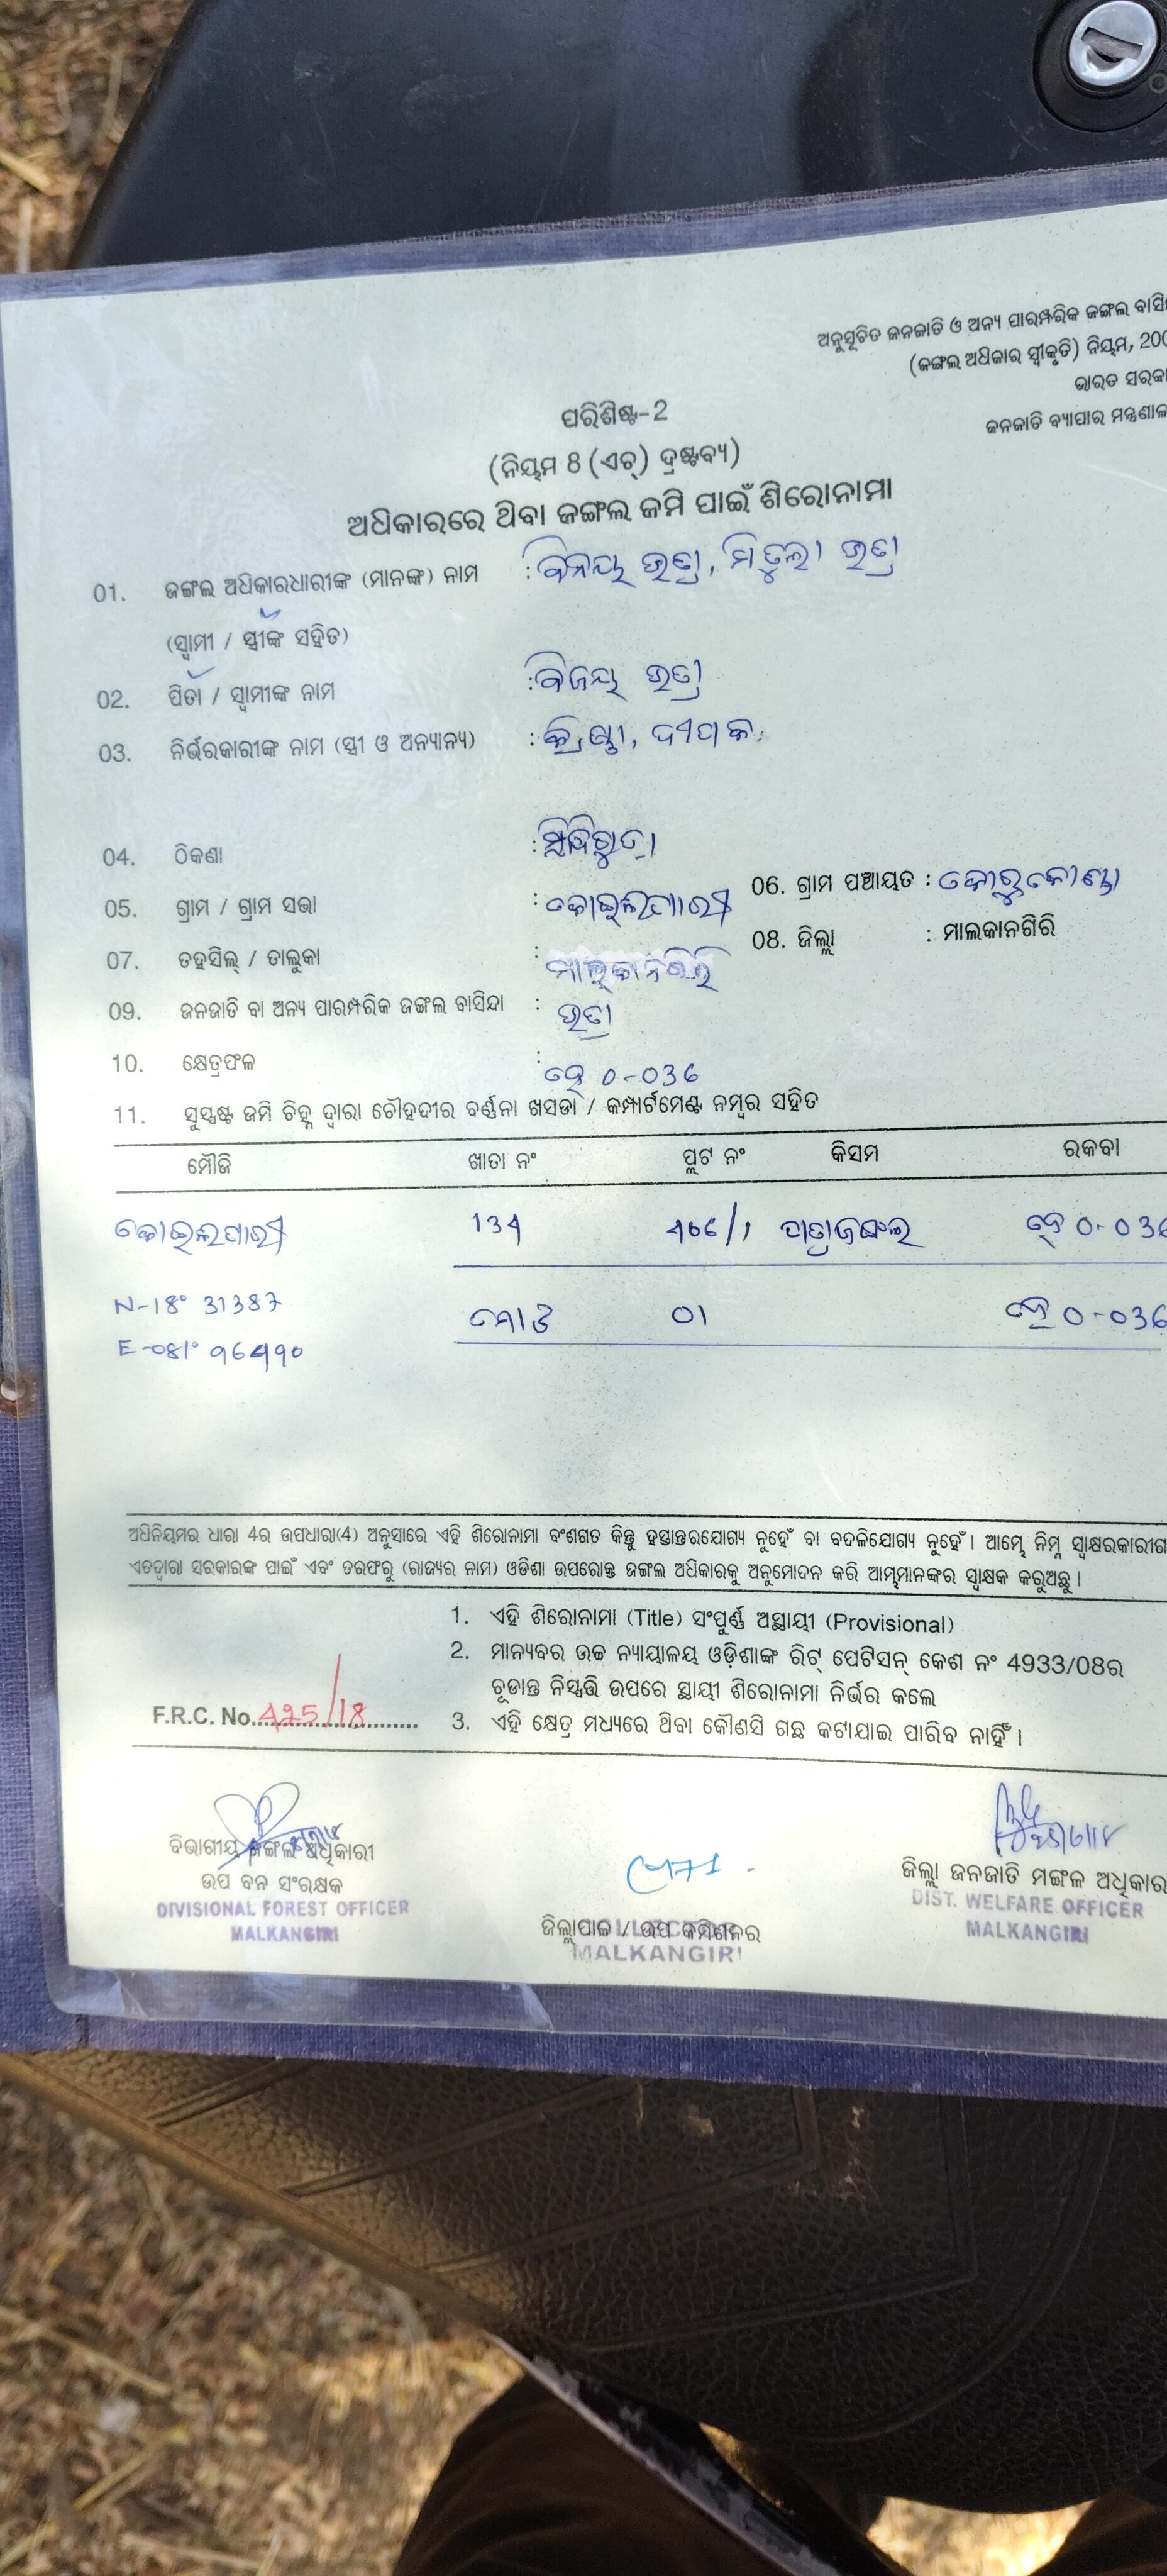 ଅନୁସୂଚିତ ଜନଜାତି ଓ ଅନ୍ୟ ପାରମ୍ପରିକ ଜଙ୍ଗଲ
(ଜଙ୍ଗଲ ଅଧିକାର ସ୍ୱୀକୃତି) ନିୟମ, 200
ଭାରତ
ଜନଜାତି ବ୍ୟାପାର
ପରିଶିଷ୍ଟ-2
(ନିୟମ 8 (ଏଚ୍) ଦ୍ରଷ୍ଟବ୍ୟ)
ଅଧିକାରରେ ଥିବା ଜଙ୍ଗଲ ଜମି ପାଇଁ ଶିରୋନାମା
01. ଜଙ୍ଗଲ ଅଧିକାରଧାରୀଙ୍କ (ମାନଙ୍କ) ନାମ : ବିନୟ ଭତ୍ରା, ମିତୁଲା ଭତ୍ରା
(ସ୍ୱାମୀ / ସ୍ତ୍ରୀଙ୍କ ସହିତ)
02. ପିତା / ସ୍ୱାମୀଙ୍କ ନାମ : ବିଜୟ ଭତ୍ରା
03. ନିର୍ଭରକାରୀଙ୍କ ନାମ (ସ୍ତ୍ରୀ ଓ ଅନ୍ୟାନ୍ୟ) : କ୍ରିଷ୍ଣା, ଦୀପକ
04. ଠିକଣା :
05. ଗ୍ରାମ / ଗ୍ରାମ ସଭା : କୋଇଲପାରୀ 06. ଗ୍ରାମ ପଞ୍ଚାୟତ : କୋରୁକୋଣ୍ଡା
07. ତହସିଲ୍ / ତାଲୁକା : ମାଲକାନଗିରି 08. ଜିଲ୍ଲା : ମାଲକାନଗିରି
09. ଜନଜାତି ବା ଅନ୍ୟ ପାରମ୍ପରିକ ଜଙ୍ଗଲ ବାସିନ୍ଦା : ଭତ୍ରା
10. କ୍ଷେତ୍ରଫଳ : ହେ 0-036
11. ସୁସ୍ପଷ୍ଟ ଜମି ଚିହ୍ନ ଦ୍ୱାରା ଚୌହଦୀର ବର୍ଣ୍ଣନା ଖସଡା / କମ୍ପାର୍ଟମେଣ୍ଟ ନମ୍ବର ସହିତ
ମୌଜି ଖାତା ନଂ ପ୍ଲଟ ନଂ କିସମ ରକବା
କୋଇଲପାରୀ 134 406/1 ପାତ୍ରାଜଙ୍ଗଲ ହେ 0-036
N-18° 31387 ମୋଟ 01 ହେ 0-036
E-081° 96490
ଅଧିନିୟମର ଧାରା 4ର ଉପଧାରା(4) ଅନୁସାରେ ଏହି ଶିରୋନାମା ବଂଶଗତ କିନ୍ତୁ ହସ୍ତାନ୍ତରଯୋଗ୍ୟ ନୁହେଁ ବା ବଦଳିଯୋଗ୍ୟ ନୁହେଁ। ଆମ୍ଭେ ନିମ୍ନ
ଏତଦ୍ୱାରା ସରକାରଙ୍କ ପାଇଁ ଏବଂ ତରଫରୁ (ରାଜ୍ୟର ନାମ) ଓଡିଶା ଉପରୋକ୍ତ ଜଙ୍ଗଲ ଅଧିକାରକୁ ଅନୁମୋଦନ କରି ଆମ୍ଭମାନଙ୍କର ସ୍ୱାକ୍ଷକ କରୁଅଛୁ।
1. ଏହି ଶିରୋନାମା (Title) ସଂପୁର୍ଣ୍ଣ ଅସ୍ଥାୟୀ (Provisional)
2. ମାନ୍ୟବର ଉଚ୍ଚ ନ୍ୟାୟାଳୟ ଓଡ଼ିଶାଙ୍କ ରିଟ୍ ପେଟିସନ୍ କେଶ ନଂ 4933/08ର
ଚୂଡାନ୍ତ ନିସ୍ପତ୍ତି ଉପରେ ସ୍ଥାୟୀ ଶିରୋନାମା ନିର୍ଭର କଲେ
F.R.C. No. 425/18
3. ଏହି କ୍ଷେତ୍ର ମଧ୍ୟରେ ଥିବା କୌଣସି ଗଛ କଟାଯାଇ ପାରିବ ନାହିଁ।
ବିଭାଗୀୟ ଜଙ୍ଗଲ ଅଧିକାରୀ
ଉପ ବନ ସଂରକ୍ଷକ
DIVISIONAL FOREST OFFICER
MALKANGIRI
ଜିଲ୍ଲାପାଳ / ଉପ କମିଶନର
MALKANGIRI
ଜିଲ୍ଲା ଜନଜାତି ମଙ୍ଗଳ
DIST. WELFARE OFFICER
MALKANGIRI